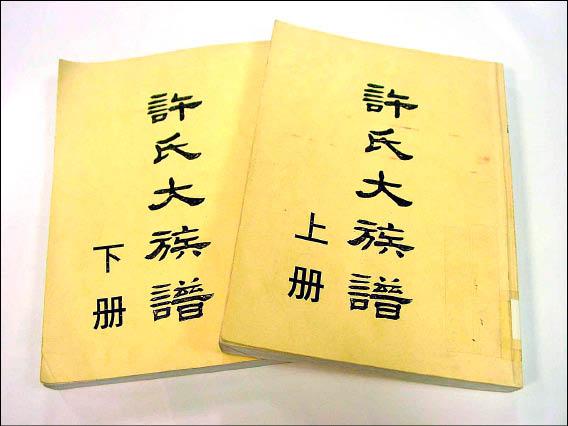 許氏大族譜
下册
許氏大族譜
上册